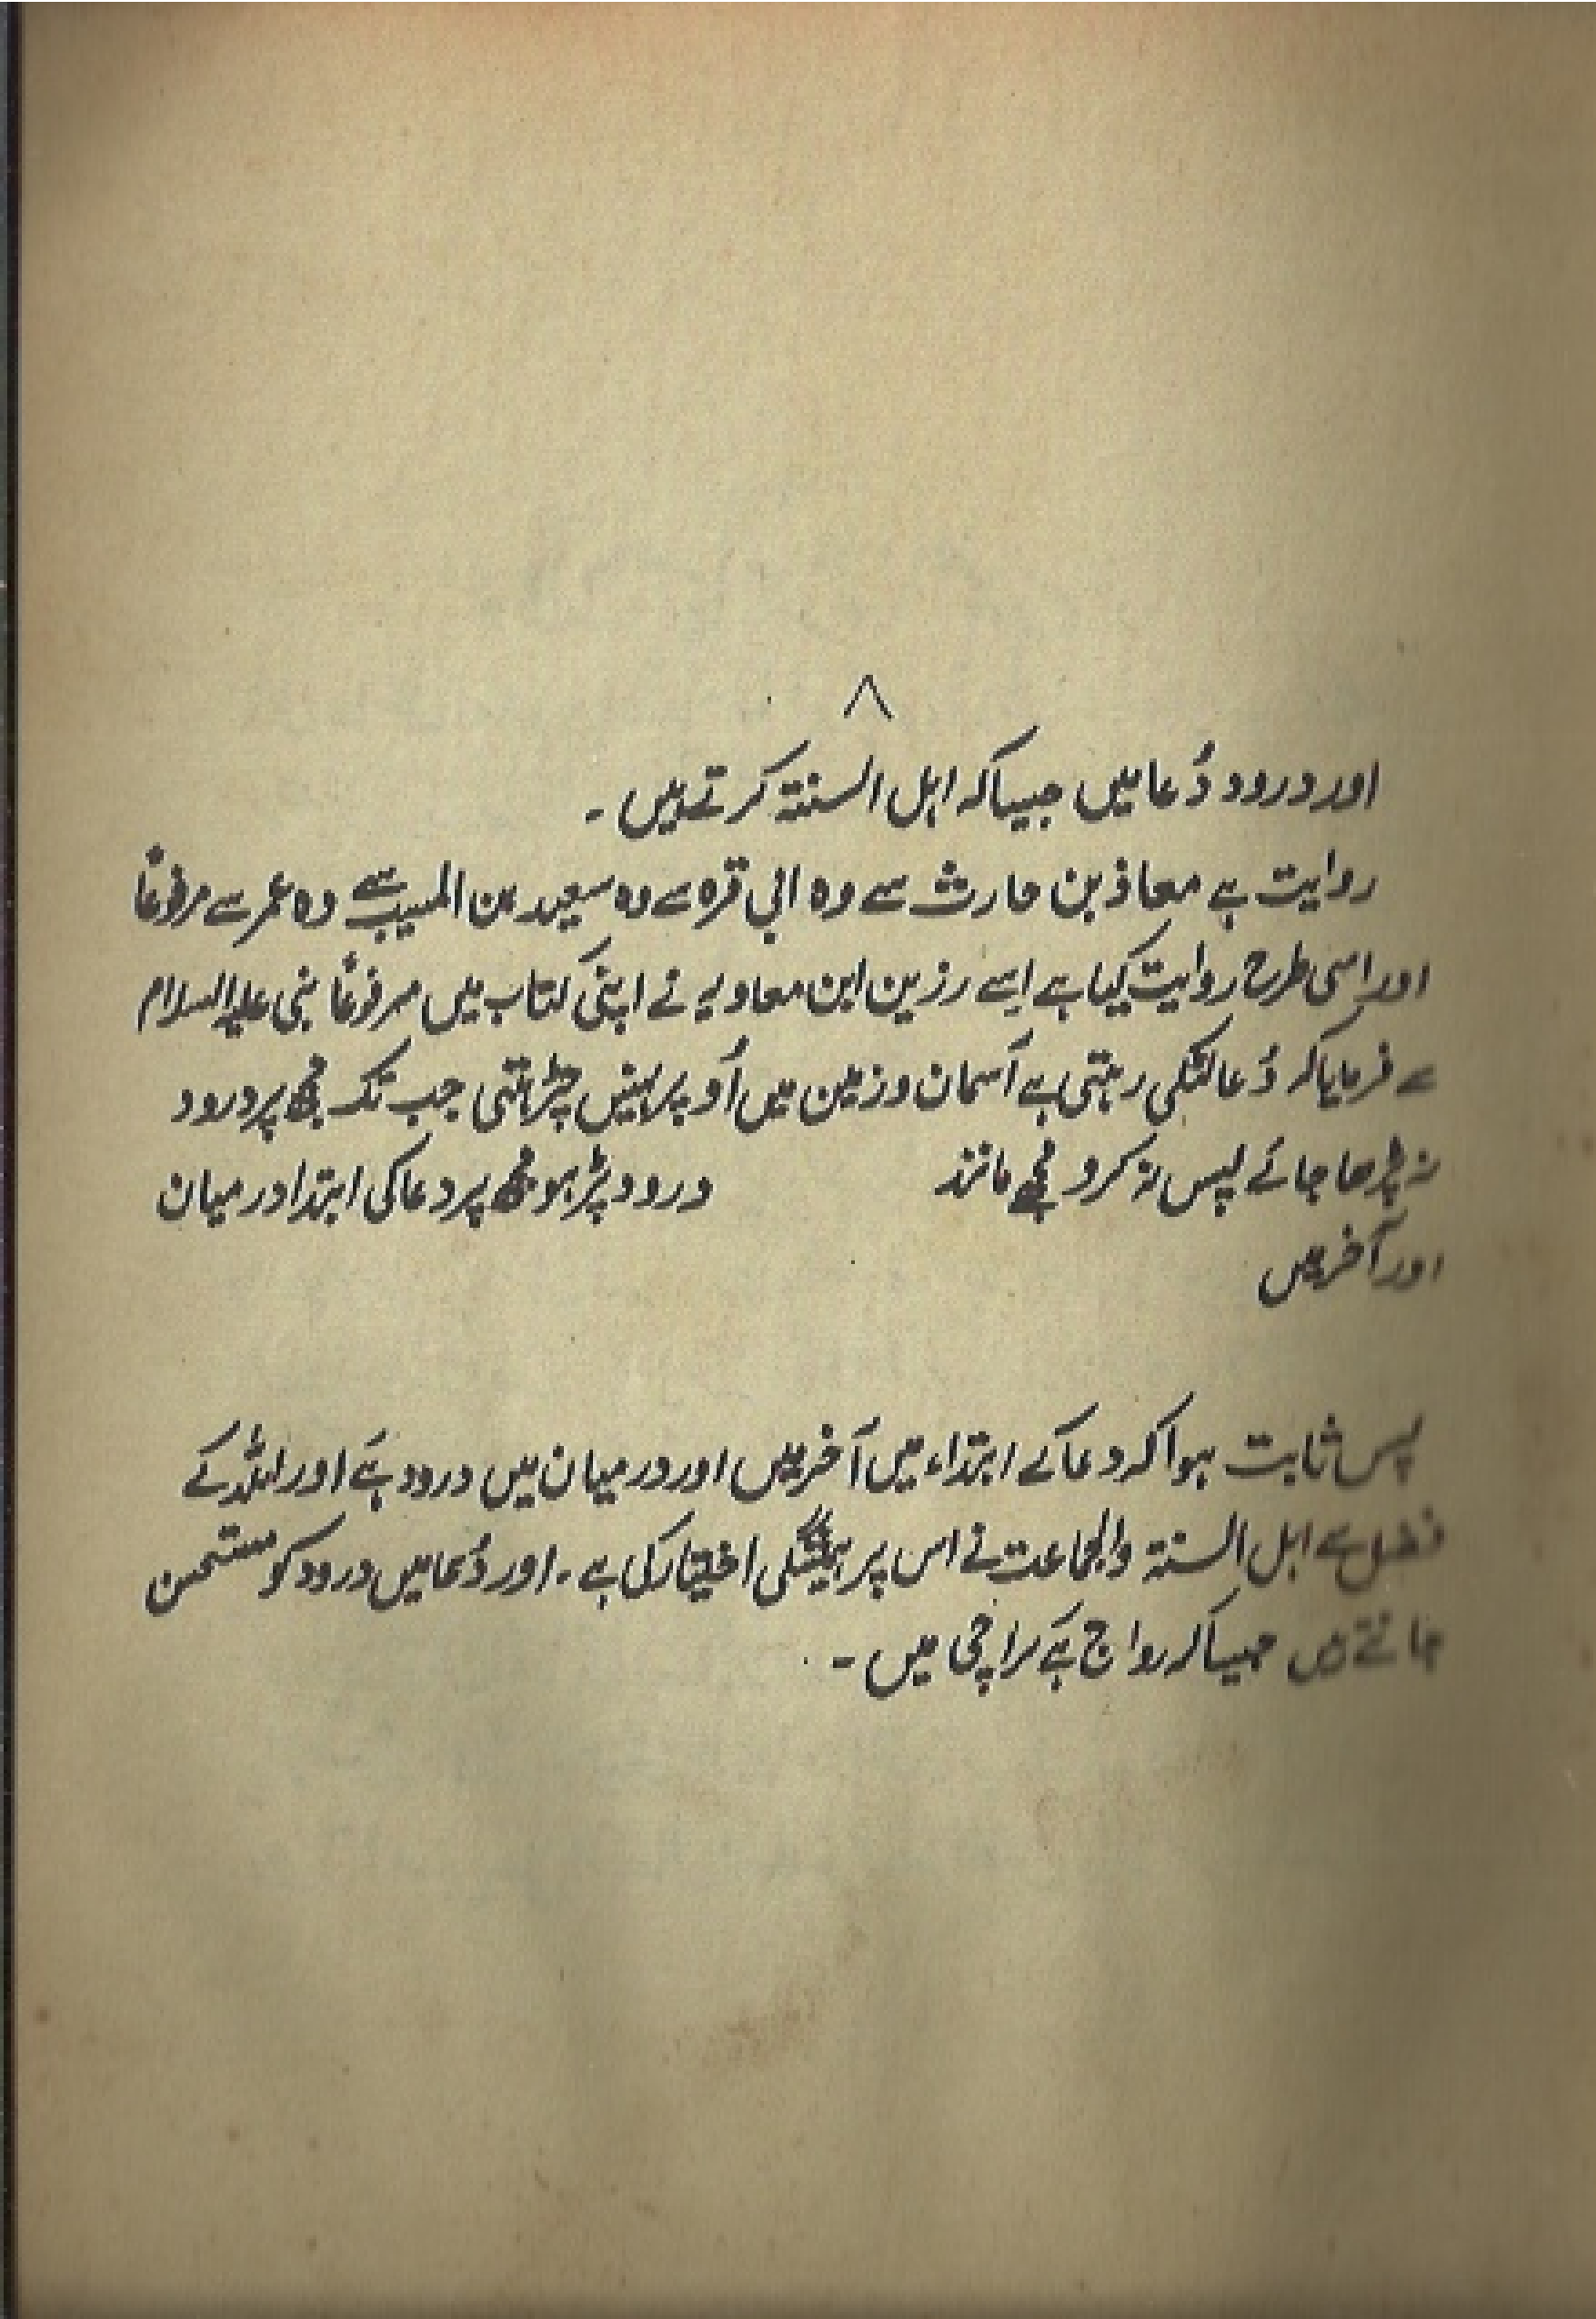 ۸
اور درود دُعا میں جیسا کہ اہل السنۃ کرتے ہیں ۔
روایت ہے معاذ بن حارث سے وہ ابی قرہ سے وہ سعید بن المسیب سے وہ عمر سے مرفوعاً
اور اسی طرح روایت کیا ہے اسے رزین ابن معاویہ نے اپنی کتاب میں مرفوعاً نبی علیہ السلام
سے فرمایا کہ دُعا لٹکی رہتی ہے آسمان و زمین میں اُوپر نہیں چڑھتی جب تک مجھ پر درود
نہ پڑھا جائے پس نہ کرو مجھے مانند درود پڑہو مجھ پر دعا کی ابتدا درمیان
اور آخر میں
پس ثابت ہوا کہ دعا کے ابتداء میں آخر میں اور درمیان میں درود ہے اور اللہ کے
فضل سے اہل السنۃ والجماعت نے اس پر ہمیشگی اختیار کی ہے ۔ اور دُعا میں درود کو مستحسن
جانتے ہیں جیسا کہ رواج ہے کراچی میں ۔